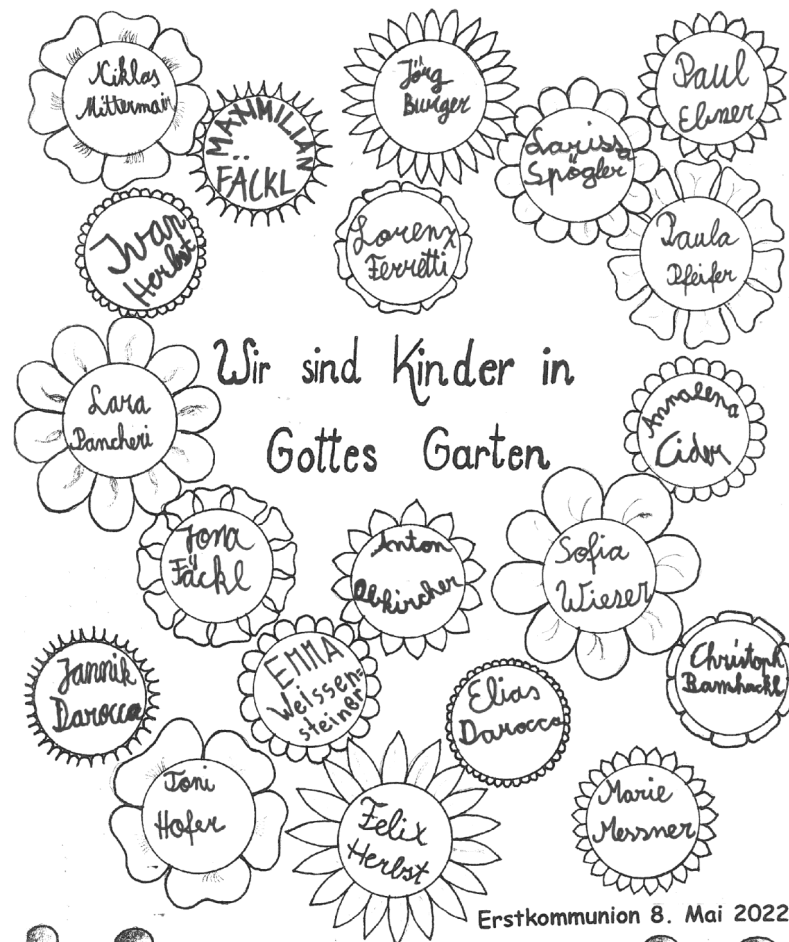 Niklas
Mittermair
MAXMILIAN
FÄCKL
Jörg
Burger
Larissa
Spögler
Paul
Ebner
Ivan
Herbst
Lorenz
Ferretti
Paula
Pfeifer
Wir sind Kinder in
Gottes Garten
Lara
Pancheri
Annalena
Jona
Fäckl
Anton
Obkircher
Sofia
Wieser
Jannik
Darocca
EMMA
Weissen=
steiner
Elias
Darocca
Christoph
Ramhackl
Toni
Hofer
Felix
Herbst
Marie
Messner
Erstkommunion 8. Mai 2022